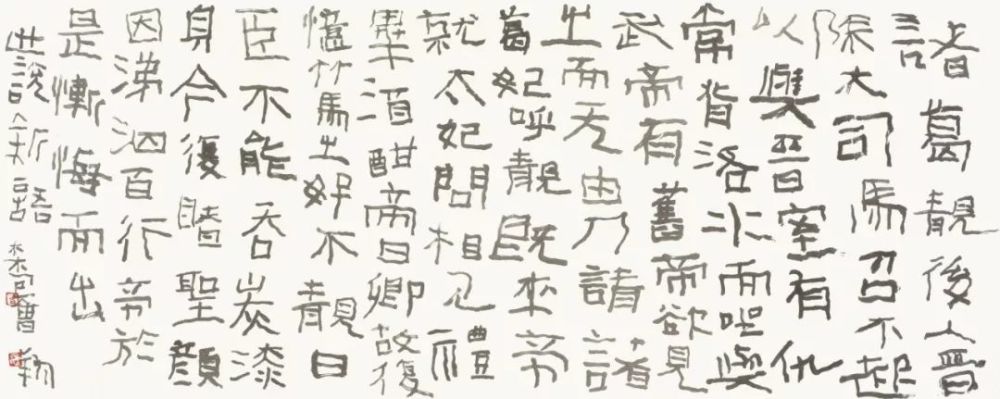 諸葛靚後入晉
除大司馬召不起
以與晉室有仇
常背洛水而坐與
武帝有舊帝欲見
之而无由乃請諸
葛妃呼靚既來帝
就太妃問相見禮
畢酒酣帝曰卿故復
憶竹馬之好不靚曰
臣不能吞炭漆
身今復睹聖顏
因涕泗百行帝於
是慚悔而出
世說新語